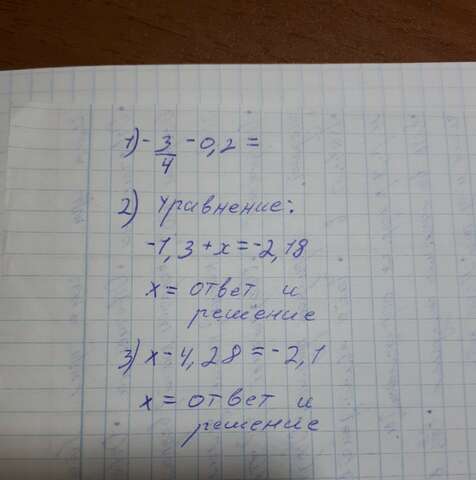 1) - 3/4 - 0,2 =
2) Уравнение:
-1,3 + x = -2,18
x = ответ и
решение
3) x - 4,28 = -2,1
x = ответ и
решение